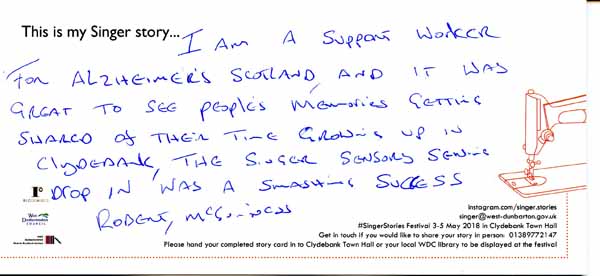 This is my Singer story... I Am A Support Worker
For Alzheimer's Scotland, and it was
great to see people's memories getting
shared of their time growing up in
Clydebank, the Singer Sensory Sewing
Drop in was a smashing success
Robert, McGuiness
instagram.com/singer.stories
singer@west-dunbarton.gov.uk
#SingerStories Festival 3-5 May 2018 in Clydebank Town Hall
Get in touch if you would like to share your story in person: 01389772147
Please hand your completed story card in to Clydebank Town Hall or your local WDC library to be displayed at the festival